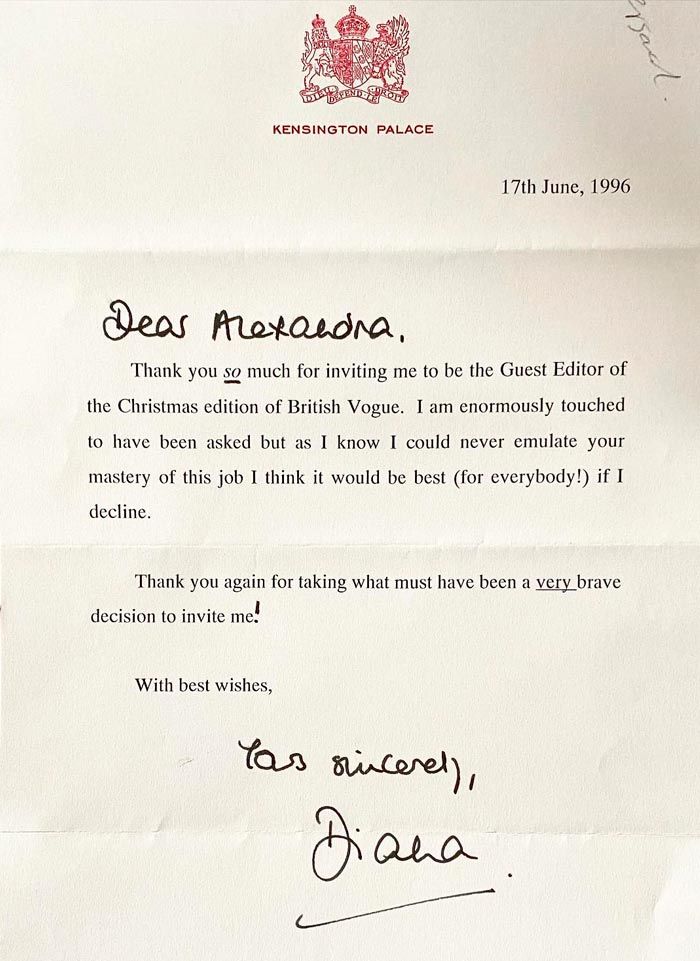 DIEU DEFEND LE DROIT
KENSINGTON PALACE
17th June, 1996
Dear Alexandra,
Thank you so much for inviting me to be the Guest Editor of
the Christmas edition of British Vogue. I am enormously touched
to have been asked but as I know I could never emulate your
mastery of this job I think it would be best (for everybody!) if I
decline.
Thank you again for taking what must have been a very brave
decision to invite me!
With best wishes,
Yours sincerely,
Diana.